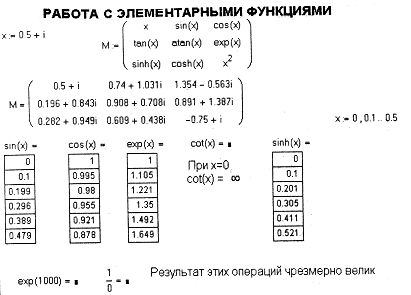 РАБОТА С ЭЛЕМЕНТАРНЫМИ ФУНКЦИЯМИ
x := 0.5 + i
M := ( x sin(x) cos(x)
tan(x) atan(x) exp(x)
sinh(x) cosh(x) x² )
M = ( 0.5 + i 0.74 + 1.031i 1.354 − 0.563i
0.196 + 0.843i 0.908 + 0.708i 0.891 + 1.387i
0.282 + 0.949i 0.609 + 0.438i −0.75 + i )
x := 0, 0.1 .. 0.5
sin(x) = cos(x) = exp(x) = cot(x) = ▪ sinh(x) =
0 1 1 При x=0 0
0.1 0.995 1.105 cot(x) = ∞ 0.1
0.199 0.98 1.221 0.201
0.296 0.955 1.35 0.305
0.389 0.921 1.492 0.411
0.479 0.878 1.649 0.521
exp(1000) = ▪ 1/0 = ▪ Результат этих операций чрезмерно велик